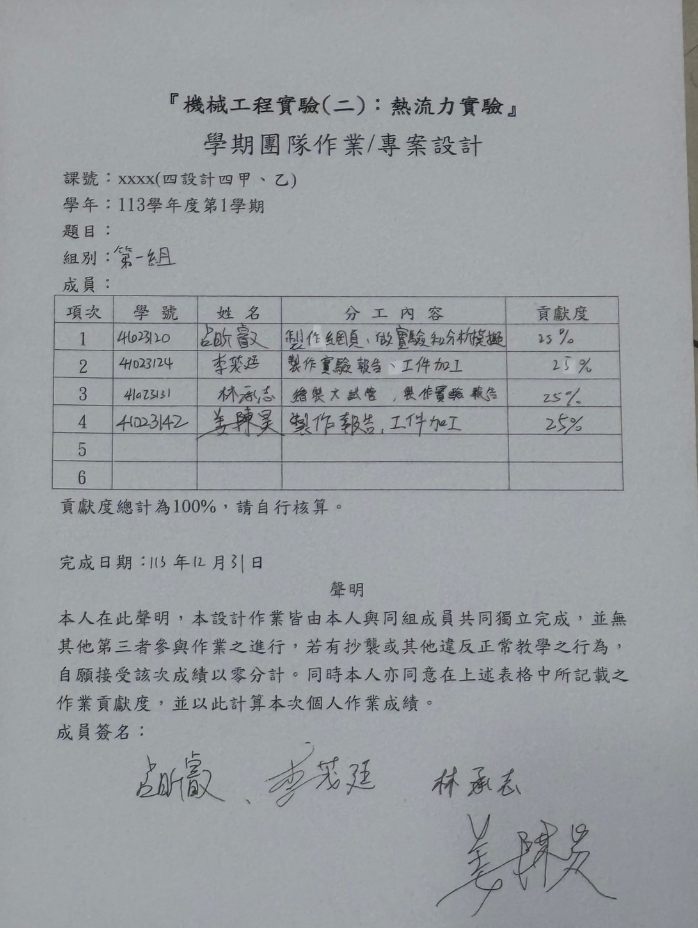 『機械工程實驗(二)：熱流力實驗』
學期團隊作業/專案設計
課號：xxxx(四設計四甲、乙)
學年：113學年度第1學期
題目：
組別：第一組
成員：
項次 學號 姓名 分工內容 貢獻度
1 41023120 占昕叡 製作網頁、做實驗和分析模擬 25%
2 41023124 李茂廷 製作實驗報告、工件加工 25%
3 41023131 林承志 繪製大試管，製作實驗報告 25%
4 41023142 姜陳昊 製作報告,工件加工 25%
5
6
貢獻度總計為100%，請自行核算。
完成日期：113年12月31日
聲明
本人在此聲明，本設計作業皆由本人與同組成員共同獨立完成，並無
其他第三者參與作業之進行，若有抄襲或其他違反正常教學之行為，
自願接受該次成績以零分計。同時本人亦同意在上述表格中所記載之
作業貢獻度，並以此計算本次個人作業成績。
成員簽名：
占昕叡、李茂廷 林承志
姜陳昊